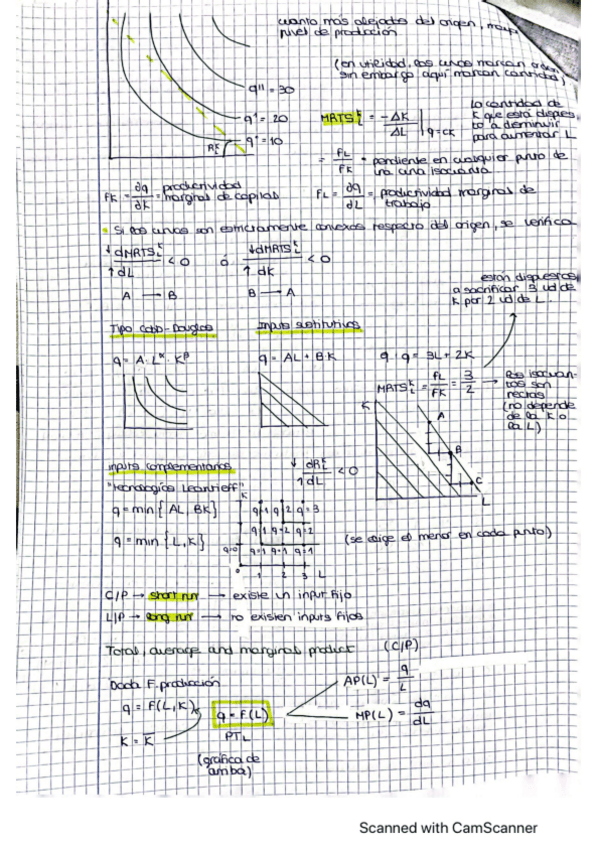 cuanto más alejados del origen, mayor
nivel de producción
(en utilidad, las curvas marcan orden
sin embargo aquí marcan cantidad)
q''' = 30
q'' = 20
q' = 10
MRTS = -ΔK/ΔL | q=ck
la cantidad de
K que está dispues
to a disminuir
para aumentar L
= FL/FK = pendiente en cualquier punto de
una curva isocuanta
FK = dq/dK = productividad marginal de capital
FL = dq/dL = productividad marginal de trabajo
• Si las curvas son estrictamente convexas respecto del origen, se verifica
↓dMRTS/↑dL < 0 ó ↓dMRTS/↑dK < 0
A → B B → A
están dispuestos
a sacrificar 3 ud de
K por 2 ud de L.
Tipo Cobb-Douglas
Inputs sustitutivos
q = A·L^α·K^β
q = AL + B·K
q = 3L + 2K
MRTS = FL/FK = 3/2 →
las isocuan-
tas son
rectas
(no depende
de la K o
la L)
K
A
B
C
L
Inputs complementarios
↓dR/↑dL < 0
"Tecnologías Leontieff"
q = min{AL, BK}
q = min{L, K}
K
q=1 q=2 q=3
q=1 q=2 q=2
q=0 q=1 q=1 q=1
0 1 2 3 L
(se elige el menor en cada punto)
C/P → short run → existe un input fijo
L/P → long run → no existen inputs fijos
Total, average and marginal product (C/P)
Dada F. producción
q = F(L, K)
K = K̄
q = F(L)
PTL
(gráfica de
arriba)
AP(L) = q/L
MP(L) = dq/dL
Scanned with CamScanner